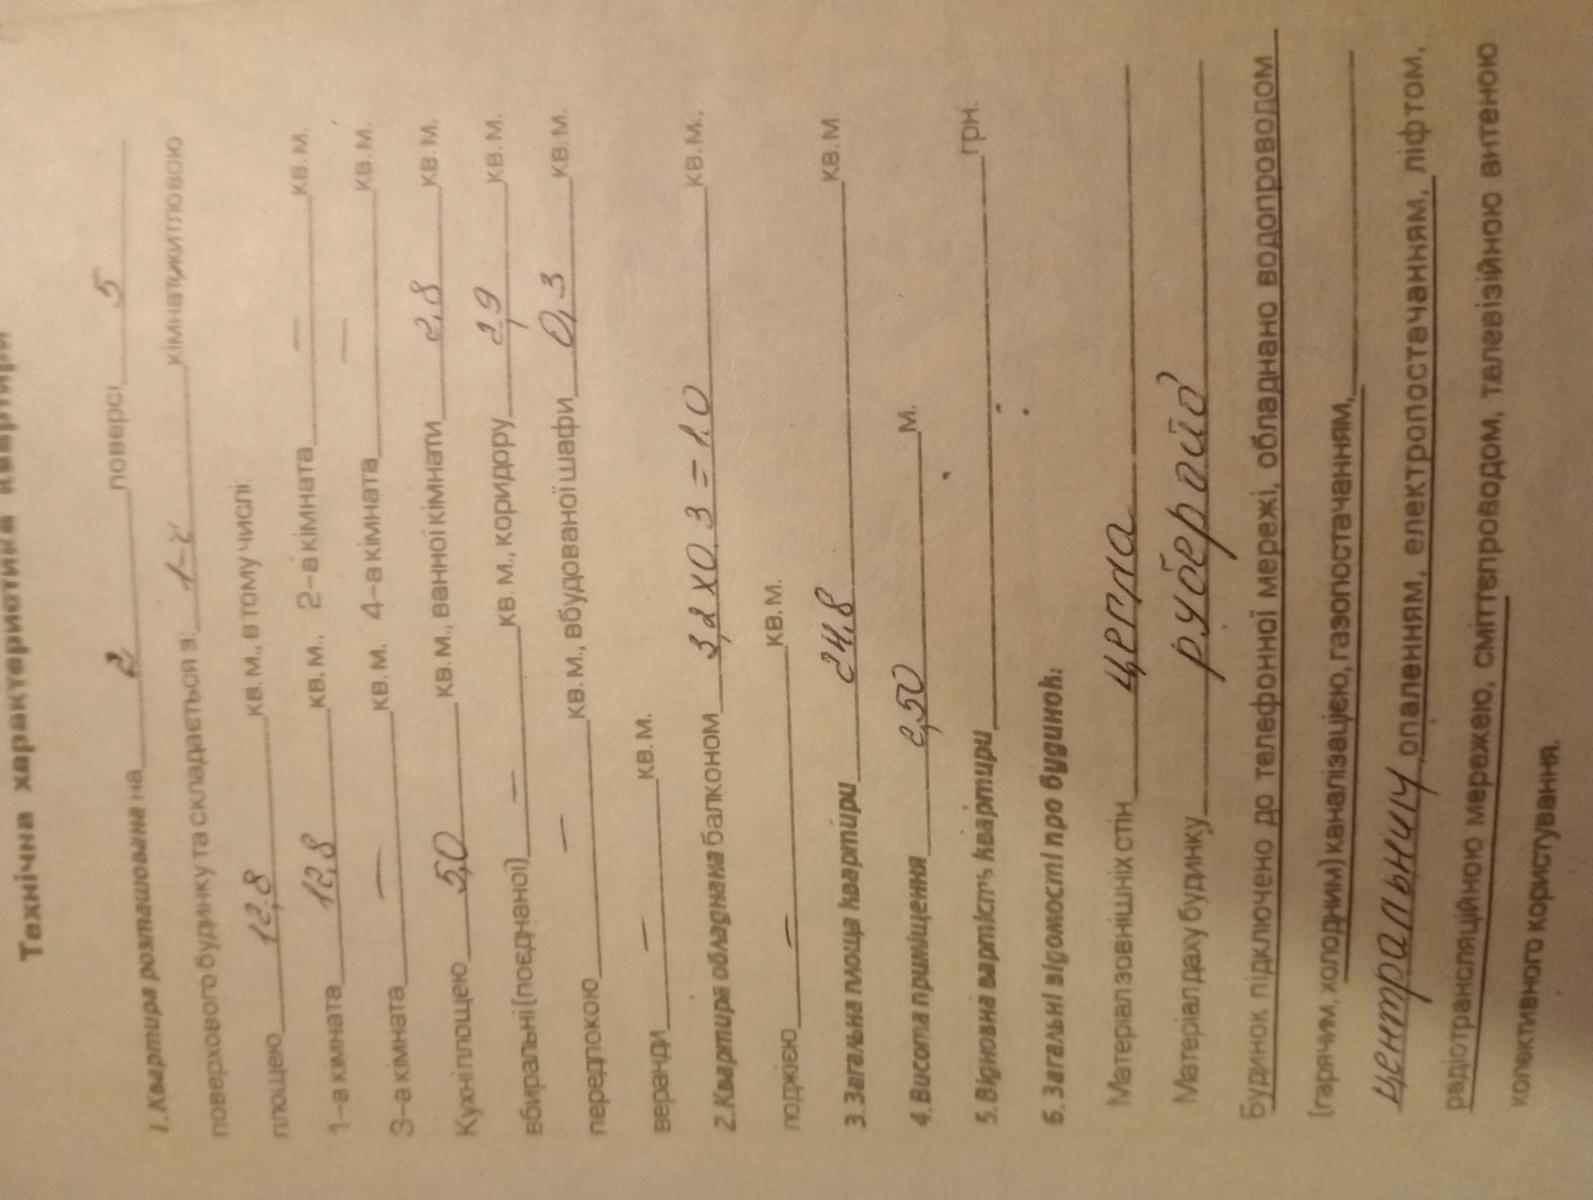 Технічна характеристика квартири
1. Квартира розташована на 2 поверсі 5
поверхового будинку та складається з 1-ї кімнат житловою
площею 12,8 кв. м., в тому числі:
1-а кімната 12,8 кв. м., 2-а кімната — кв. м.
3-а кімната — кв. м. 4-а кімната — кв. м.
Кухні площею 5,0 кв. м., ванної кімнати 2,8 кв. м.
вбиральні (поєднаної) — кв. м., коридору 2,9 кв. м.
передпокою — кв. м., вбудованої шафи 0,3 кв. м.
веранди — кв. м.
2. Квартира обладнана балконом 3,2 х 0,3 = 1,0 кв. м.,
лоджією — кв. м.
3. Загальна площа квартири 24,8 кв. м
4. Висота приміщення 2,50 м.
5. Відновна вартість квартири грн.
6. Загальні відомості про будинок:
Матеріал зовнішніх стін цегла
Матеріал даху будинку руберойд
Будинок підключено до телефонної мережі, обладнано водопроводом
(гарячим, холодним) каналізацією, газопостачанням,
центральним опаленням, електропостачанням, ліфтом,
радіотрансляційною мережею, сміттєпроводом, телевізійною антеною
колективного користування.